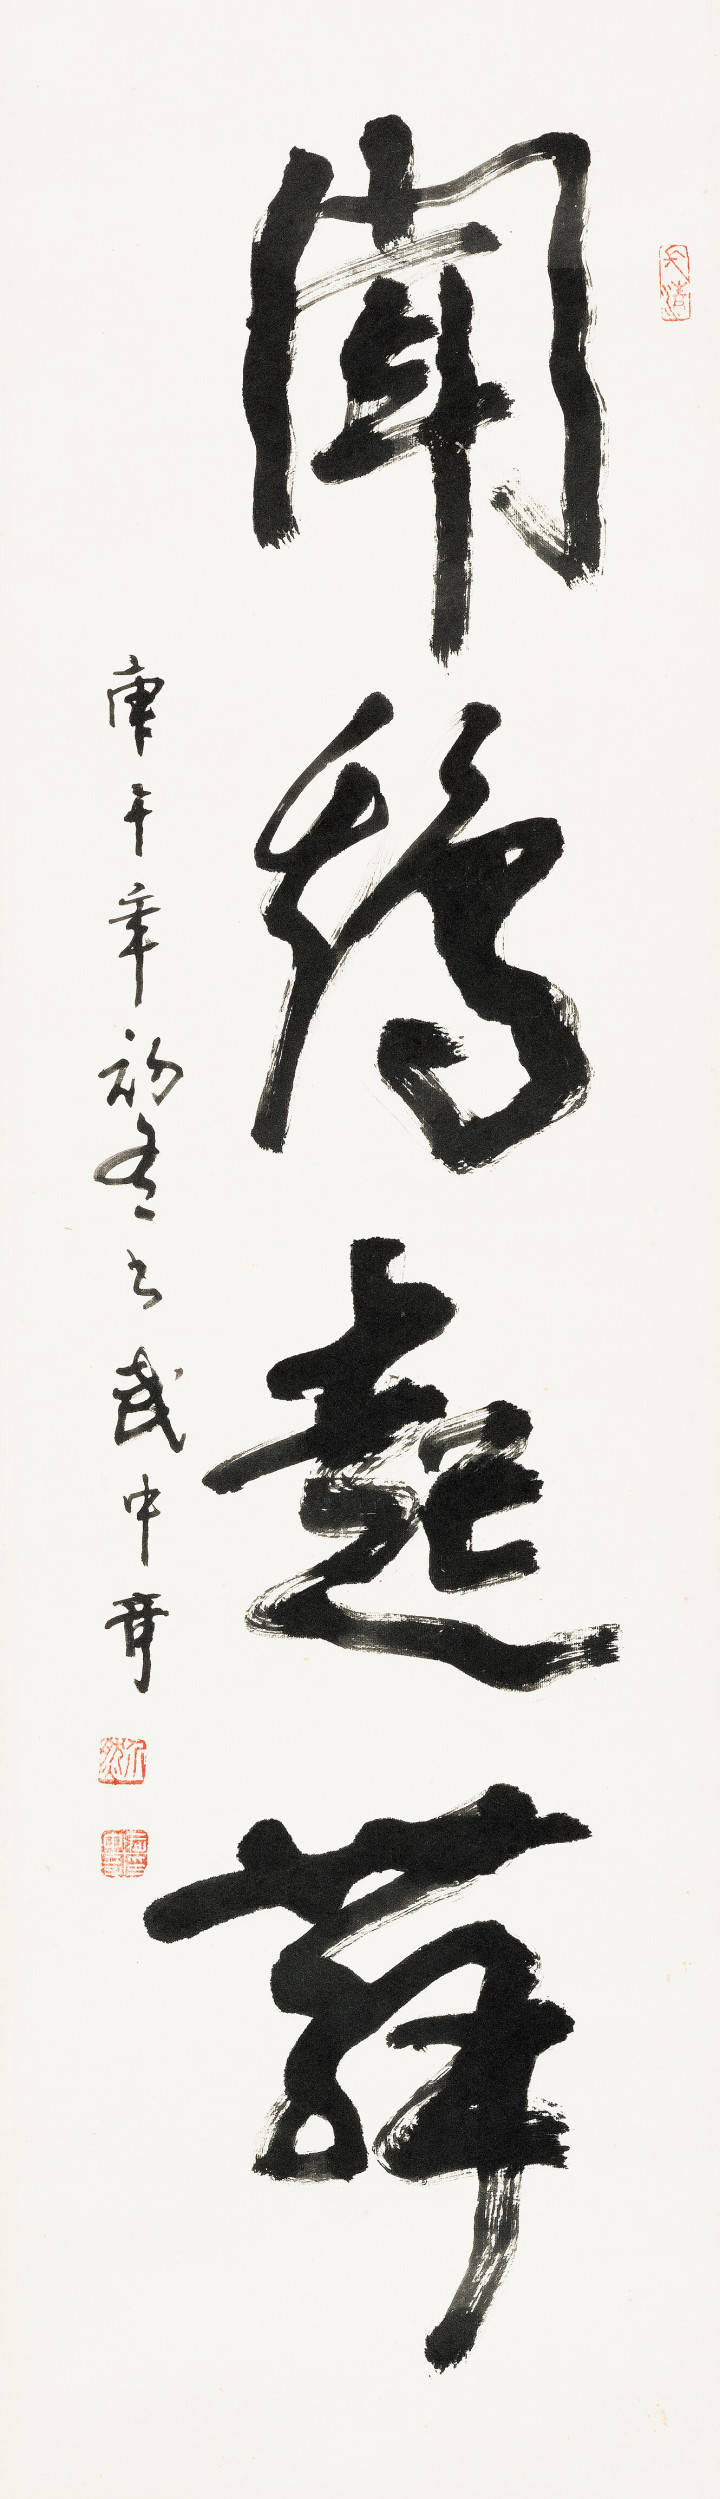 聞鷄起舞
庚午年初冬之武中奇